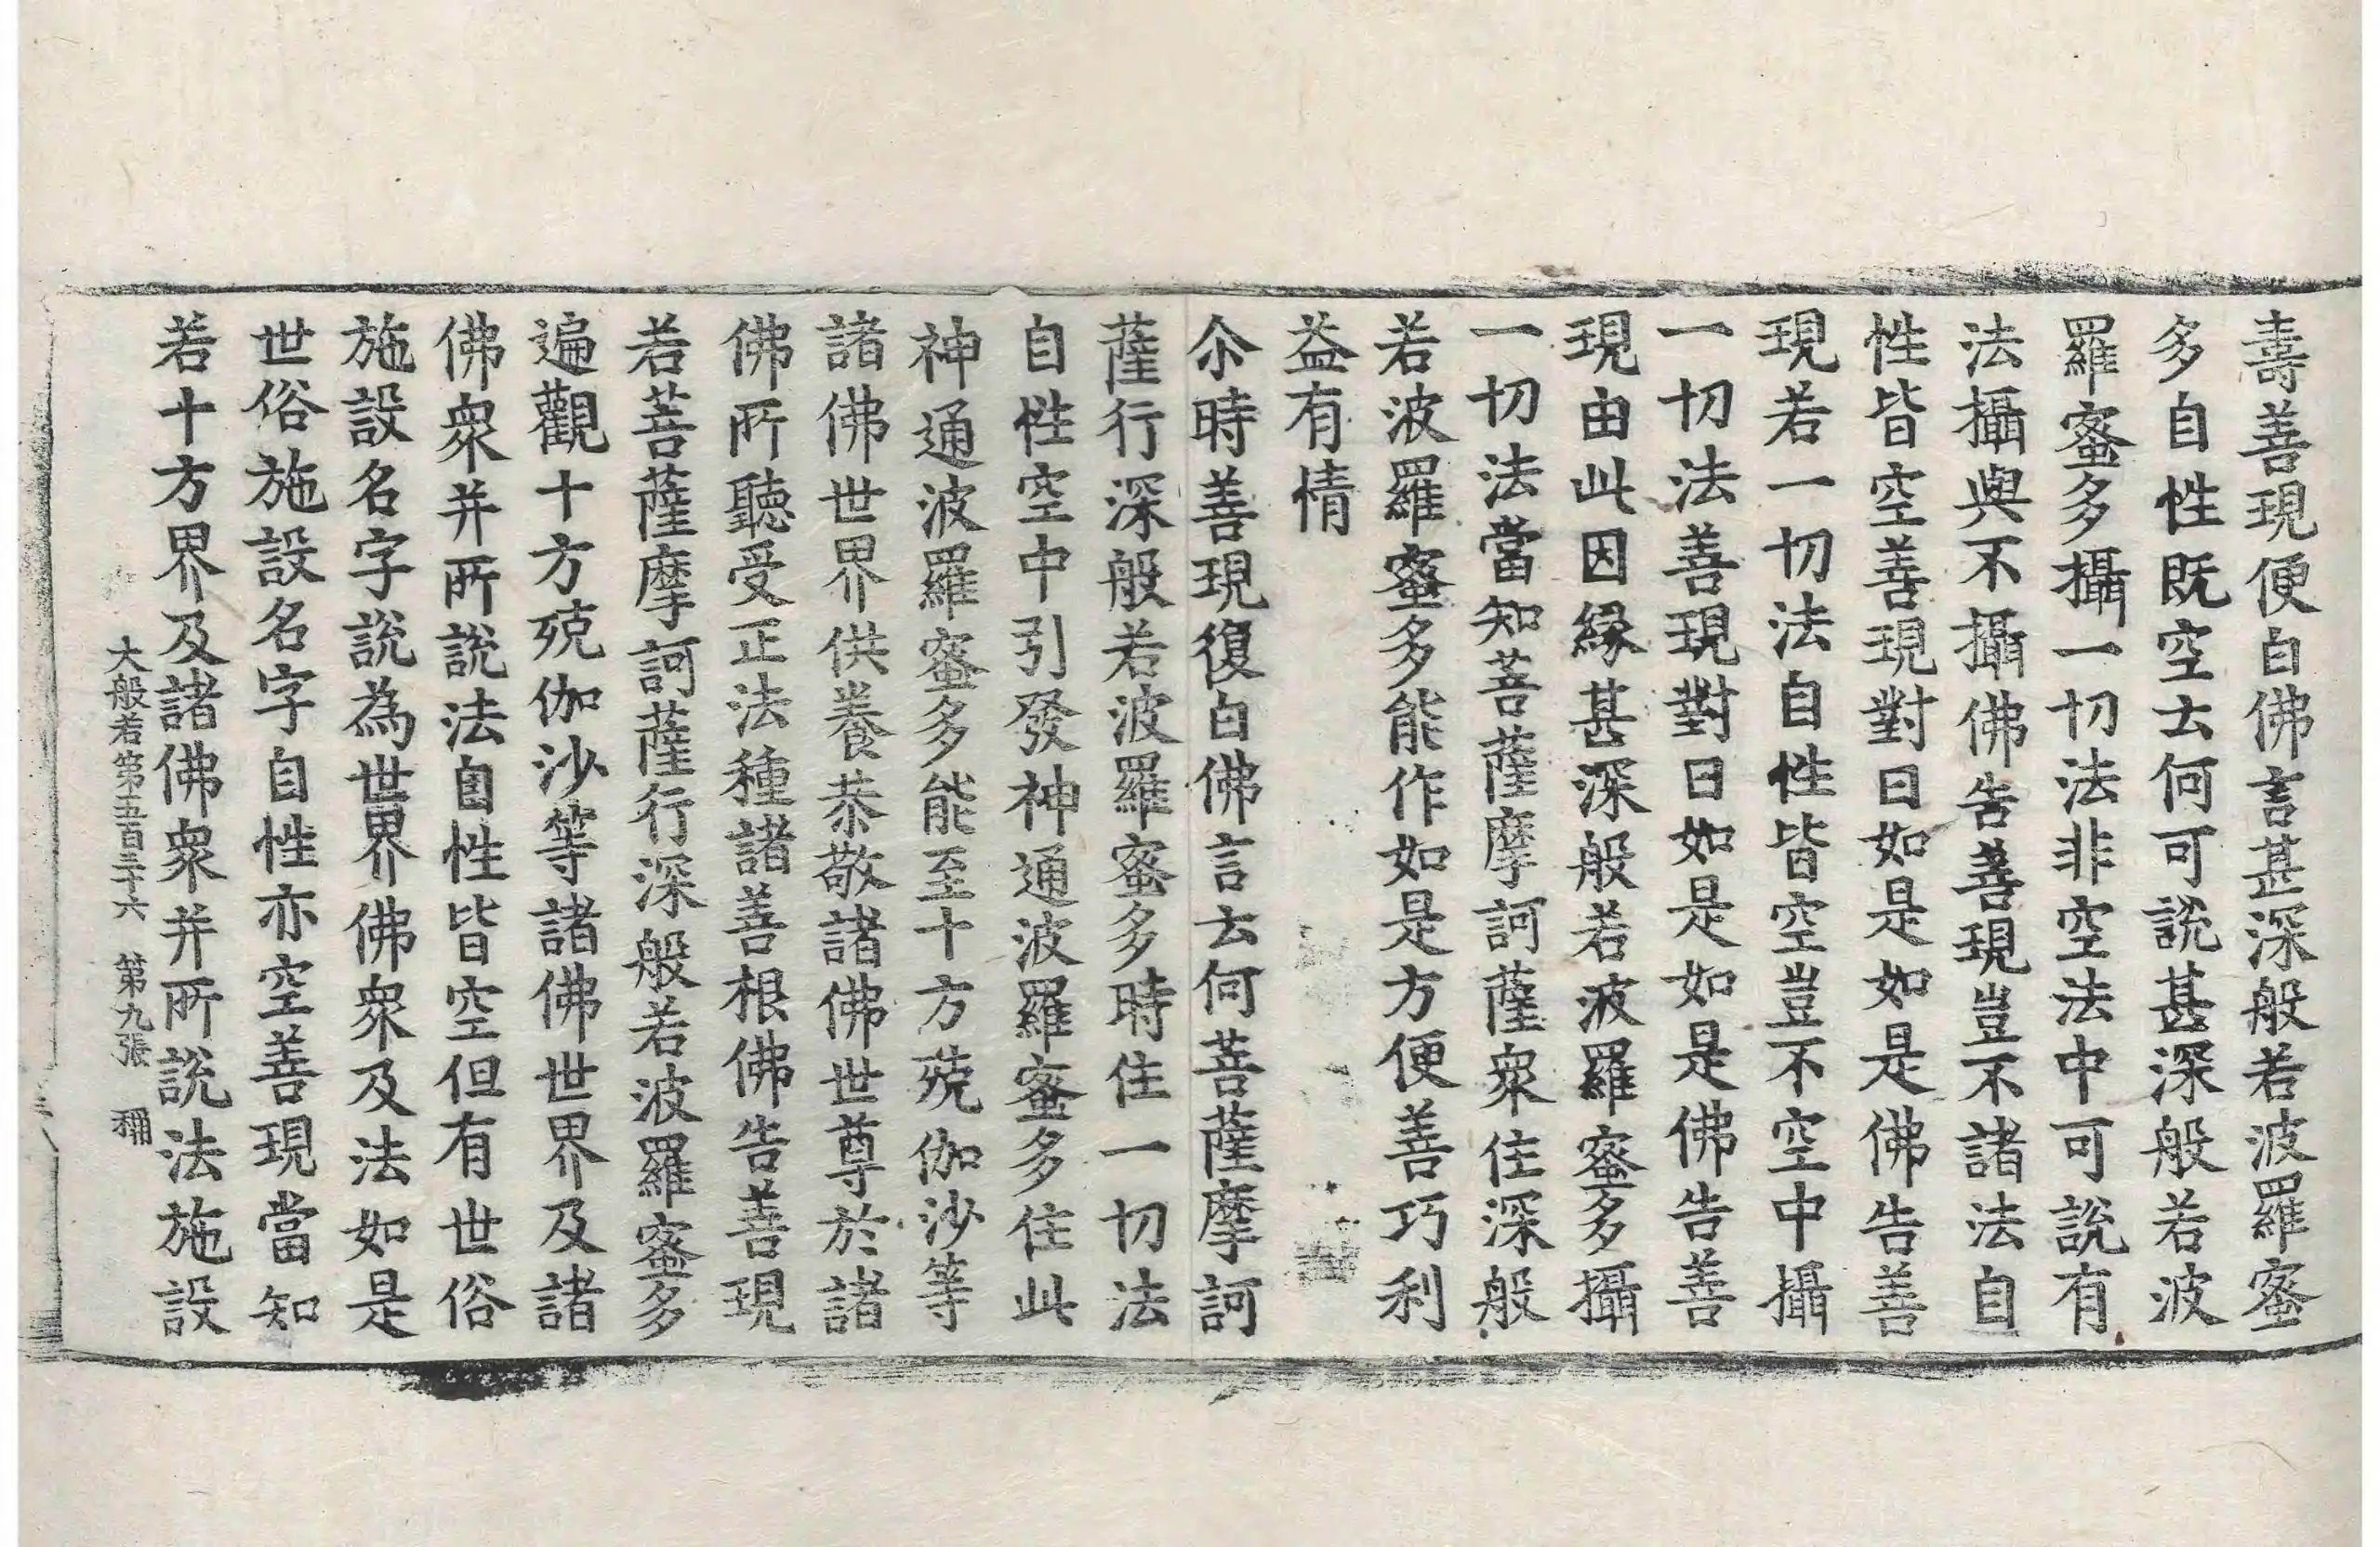 壽善現便白佛言甚深般若波羅蜜
多自性既空云何可說甚深般若波
羅蜜多攝一切法非空法中可說有
法攝與不攝佛告善現豈不諸法自
性皆空善現對曰如是如是佛告善
現若一切法自性皆空豈不空中攝
一切法善現對曰如是如是佛告善
現由此因緣甚深般若波羅蜜多攝
一切法當知菩薩摩訶薩眾住深般
若波羅蜜多能作如是方便善巧利
益有情
尒時善現復白佛言云何菩薩摩訶
薩行深般若波羅蜜多時住一切法
自性空中引發神通波羅蜜多住此
神通波羅蜜多能至十方殑伽沙等
諸佛世界供養恭敬諸佛世尊於諸
佛所聽受正法種諸善根佛告善現
若菩薩摩訶薩行深般若波羅蜜多
遍觀十方殑伽沙等諸佛世界及諸
佛眾并所說法自性皆空但有世俗
施設名字說為世界佛眾及法如是
世俗施設名字自性亦空善現當知
若十方界及諸佛眾并所說法施設
大般若第五百三十六 第九張 稱